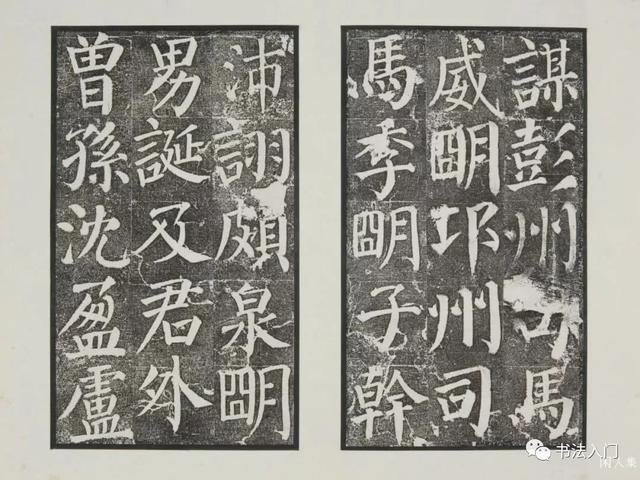 謀彭州司馬
威明邛州司
馬季明子幹
沛詡頗泉明
男誕及君外
曾孫沈盈盧
书法入门
闲人集